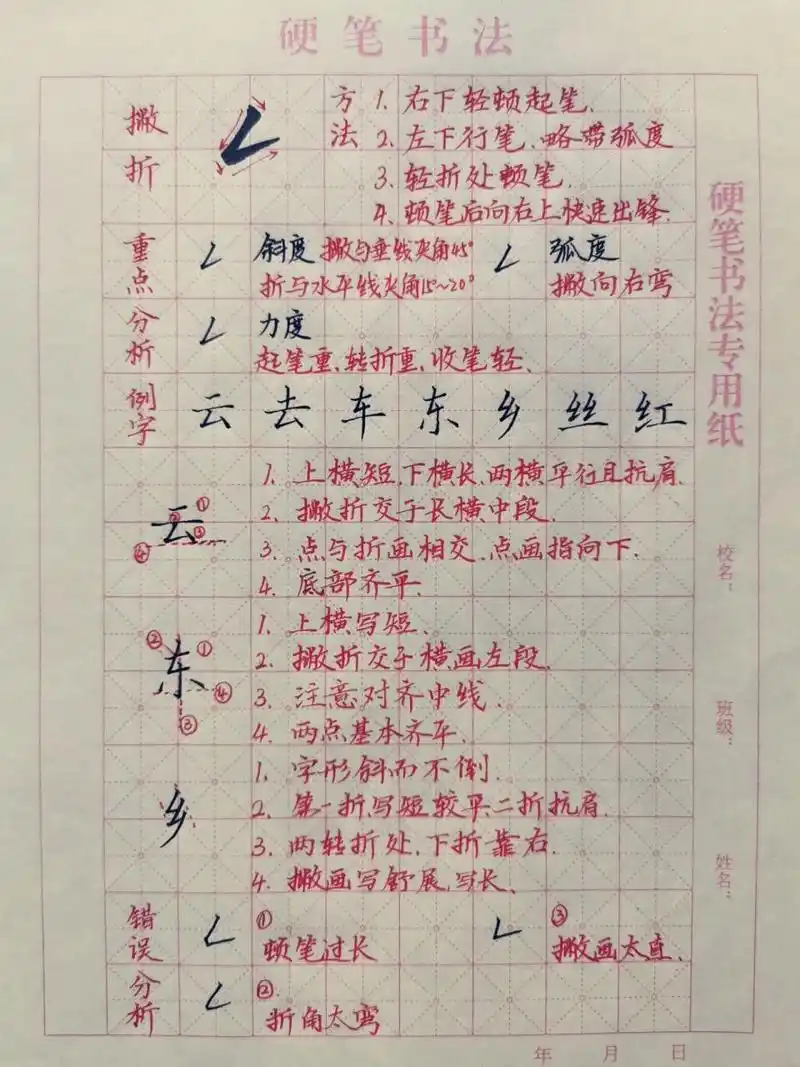 硬笔书法
撇折
方法
1. 右下轻顿起笔.
2. 左下行笔、略带弧度
3. 轻折处顿笔.
4. 顿笔后向右上快速出锋.
重点
斜度 撇与垂线夹角45°
折与水平线夹角15~20°
弧度
撇向右弯
分析
力度
起笔重、转折重、收笔轻.
例字
云 去 车 东 乡 丝 红
云
① ② ③ ④
1. 上横短、下横长、两横平行且抗肩.
2. 撇折交于长横中段.
3. 点与折画相交、点画指向下.
4. 底部齐平.
东
② ① ④ ③
1. 上横写短.
2. 撇折交于横画左段.
3. 注意对齐中线.
4. 两点基本齐平.
乡
1. 字形斜而不倒.
2. 第一折写短较平、二折抗肩.
3. 两转折处、下折靠右.
4. 撇画写舒展、写长.
错误
①
顿笔过长
③
撇画太直.
分析
②
折角太弯
年 月 日
硬笔书法专用纸
校名：
班级：
姓名：